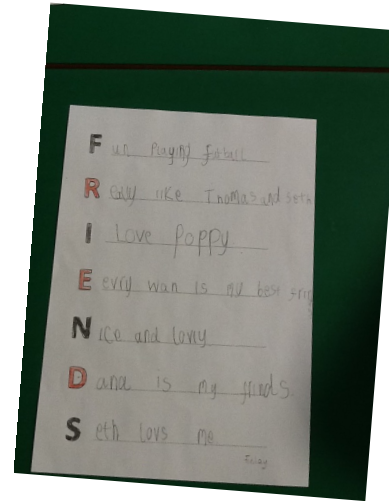 Fun Playing futball
Relly like Thomas and seth
I love Poppy
Eevry wan is my best frin
Nice and lovly
Dana is my frinds
Seth lovs me